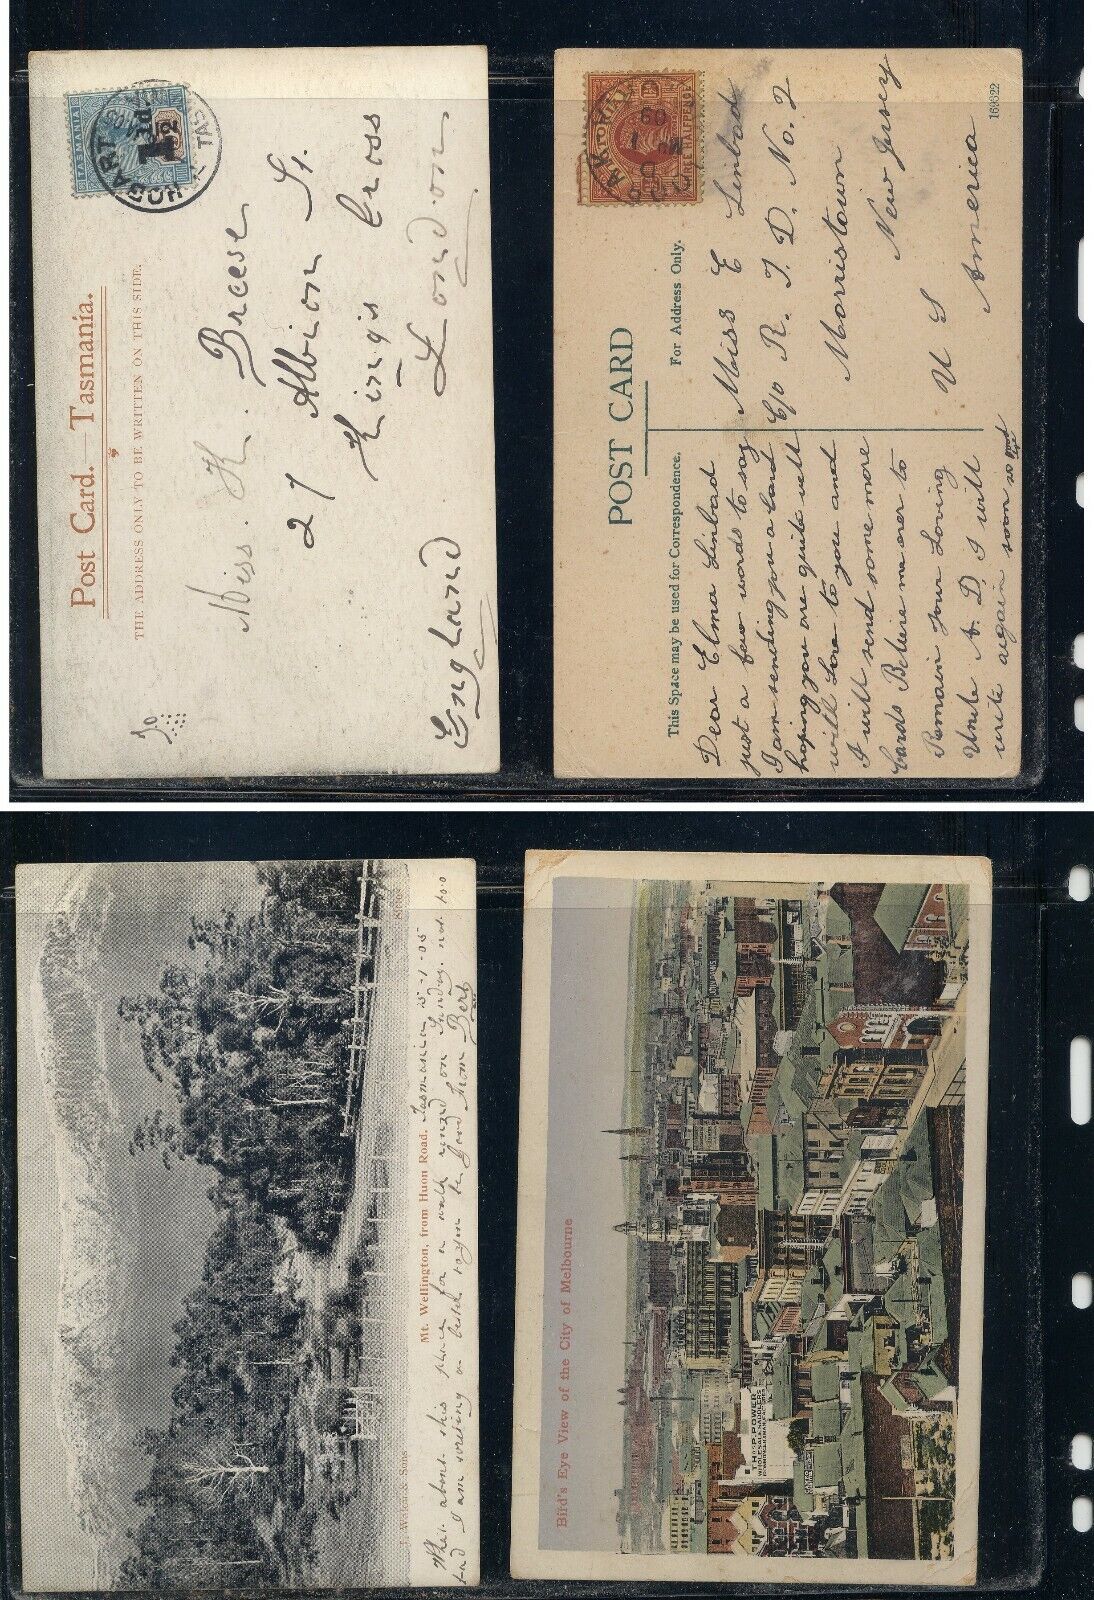 Post Card.—Tasmania.
THE ADDRESS ONLY TO BE WRITTEN ON THIS SIDE.
TASMANIA
1½d.
HOBART
TAS
To
Miss. H. Breese
27 Albion St.
King's Cross
London
England
POST CARD
This Space may be used for Correspondence.
For Address Only.
162622
THREE HALFPENCE
Dear Elma Linbad
just a few words to say
I am sending you a card
hoping you are quite well
with love to you and
I will send some more
Cards Believe me ever to
Remain Your Loving
Uncle A. D. I will
write again soon so
Miss E Linbad
C/o R. F. D. No. 2
Morristown
New Jersey
U S America
J. Walch & Sons
Series
Mt. Wellington, from Huon Road, Tasmania 15-1-05
What about this place for a walk round on Sunday. not too
bad I am writing a letter to you Be Good from Bert
Bird's Eye View of the City of Melbourne
POWER
WHOLESALE SADDLERS